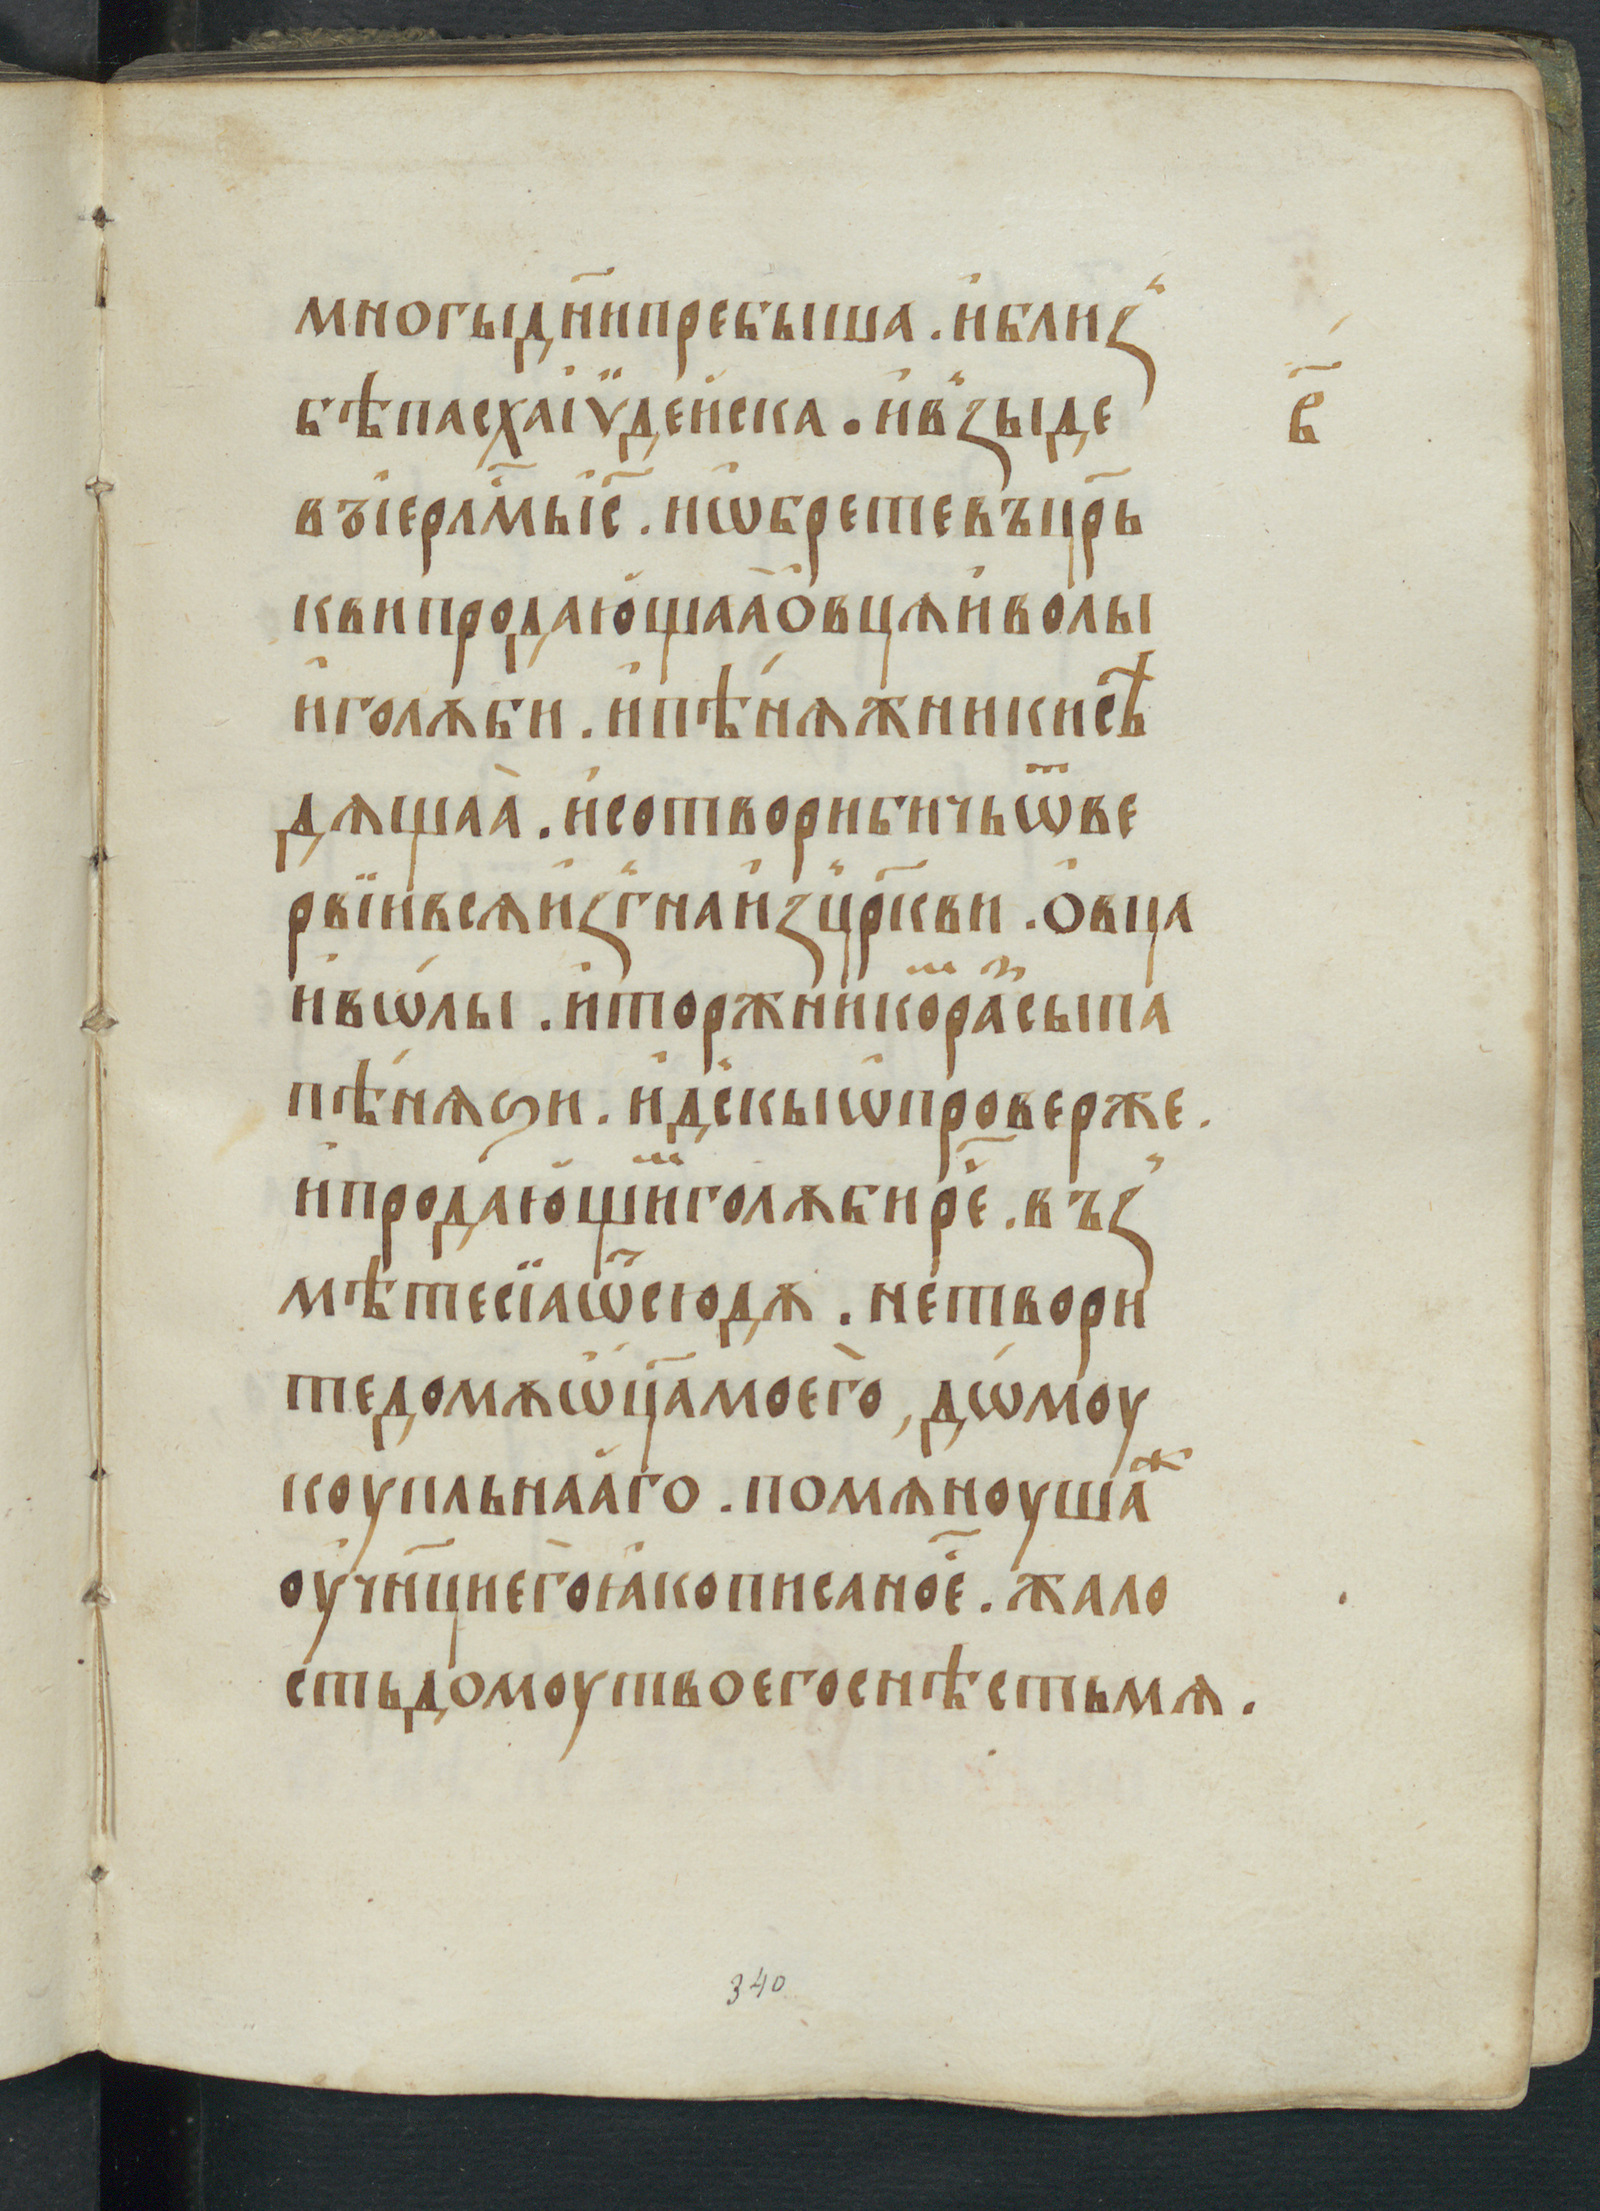 многыд҃нипребыша . и҆близ̾
бѣпасхаі҆ѵ̈деиска . и҆в̾зыде
в҃
въі҆ерл҃мьі҆с҃ . и҆ѡбрететевъцр҃ь
квипродаю҆щаа҆о҆вцѫи҆волы
и҆голѫби . и҆пѣ́нѫжникисѣ
дѫщаа̀ . и҆сотворибичьѿве
рвїи҆всѧи҆з̾гнаи҆зц҃ркви . о҆вца
и҆вѡ́лы . и҆торжникѡⷨраⷥсыпа
пѣ́нѧѕи . и҆д̾скыѡпроверже .
и҆продаю҆щиⷨголѫбир҃е . въз̾
мѣтесїаѿсюдѫ . нетвори
тедомѫѡ҆ц҃амоего̀ , дѡ́моу
коупльнаа҆го . помѧноушаⷤ
оу҆чн҃циего̀ꙗ҆кописаное҃ . жало
стьдомоутвоегоснѣстьмѧ .
340